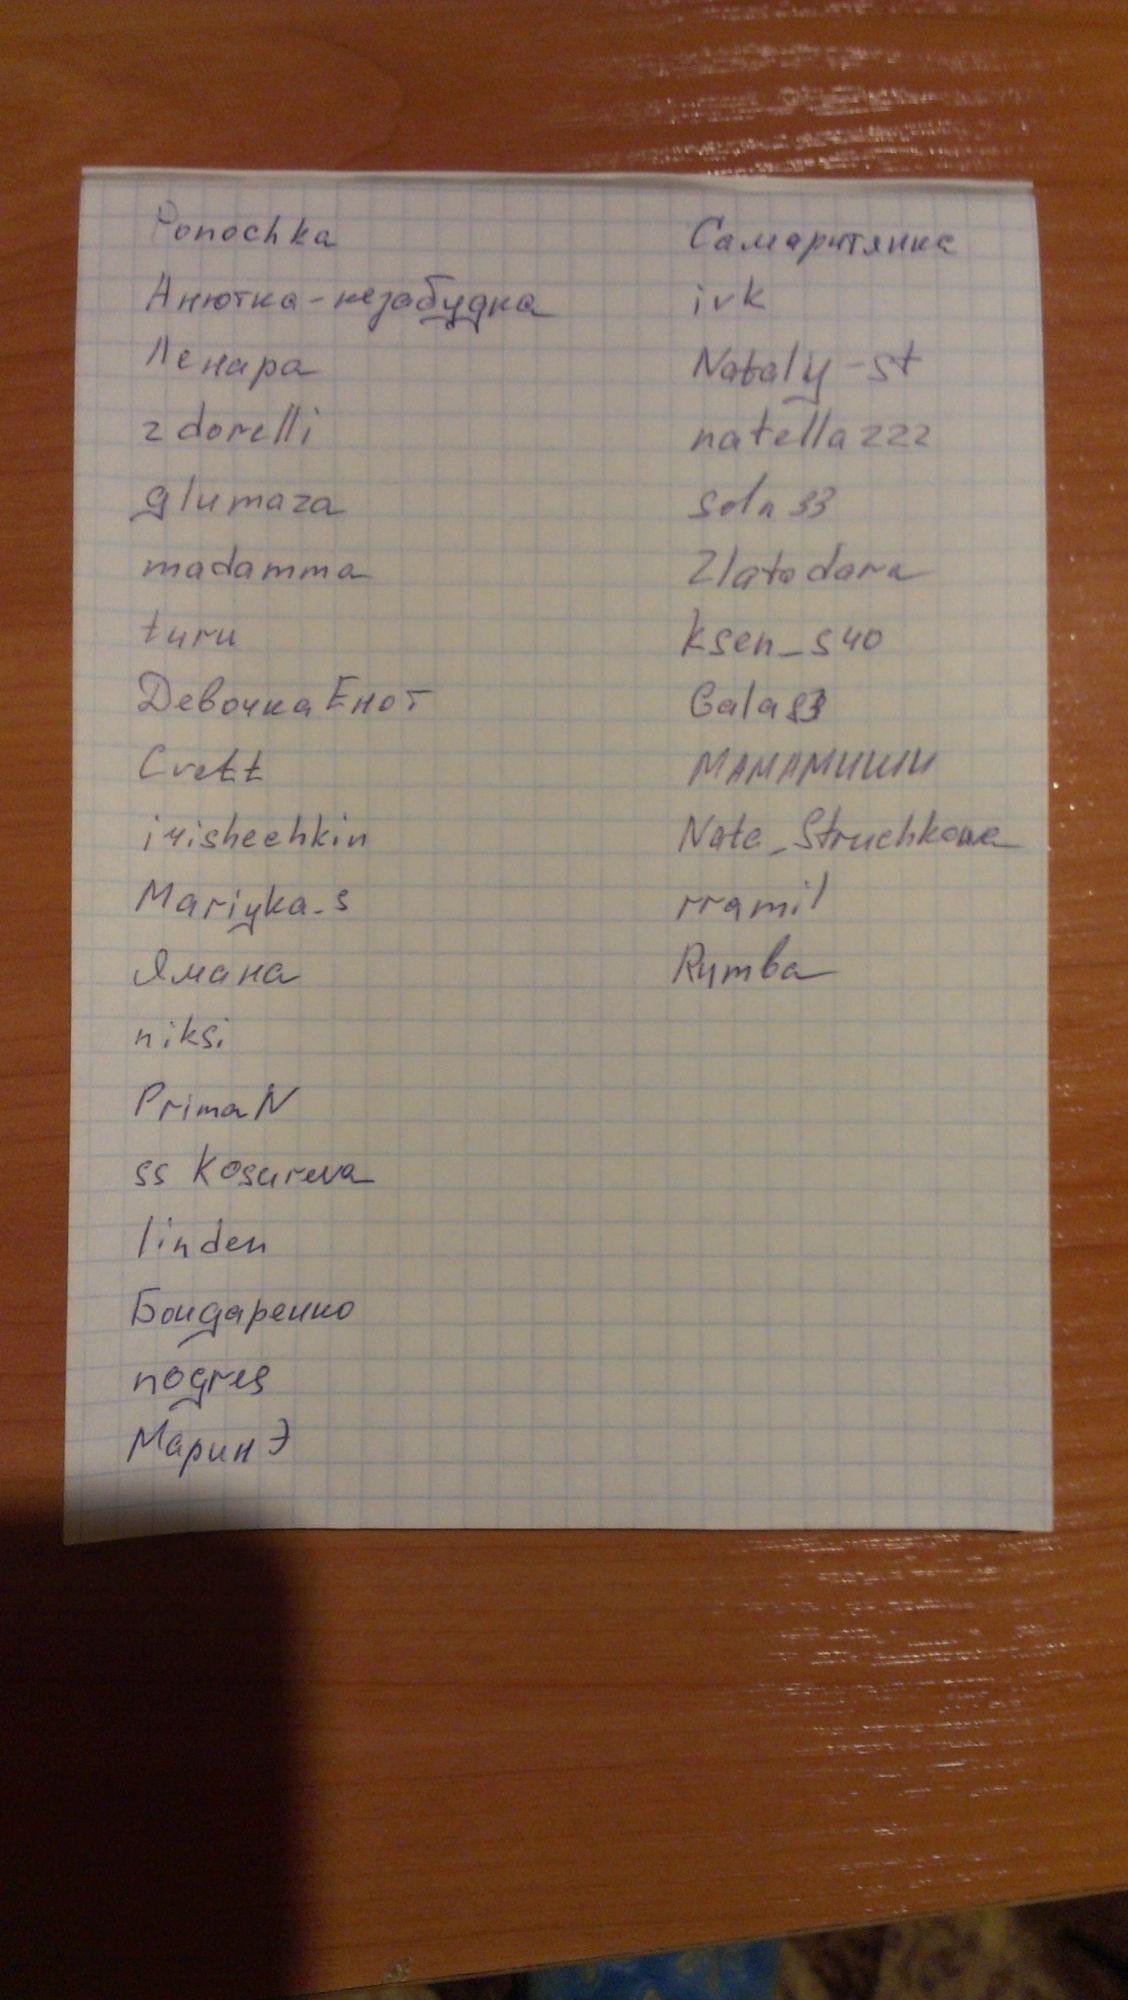 Ponochka
Анютка-незабудка
Ленара
zdorelli
glumaza
madamma
turu
Девочка Енот
Cvett
irisheehkin
Mariyka_s
Ямана
niksi
PrimaN
ss Kosareva
linden
Бондаренко
nogres
МаринЭ
Самаритянка
ivk
Nataly-st
natella222
soln33
Zlatodara
ksen_s40
Gala83
МАМАМИШИ
Nata_Struchkowa
rramil
Rymba